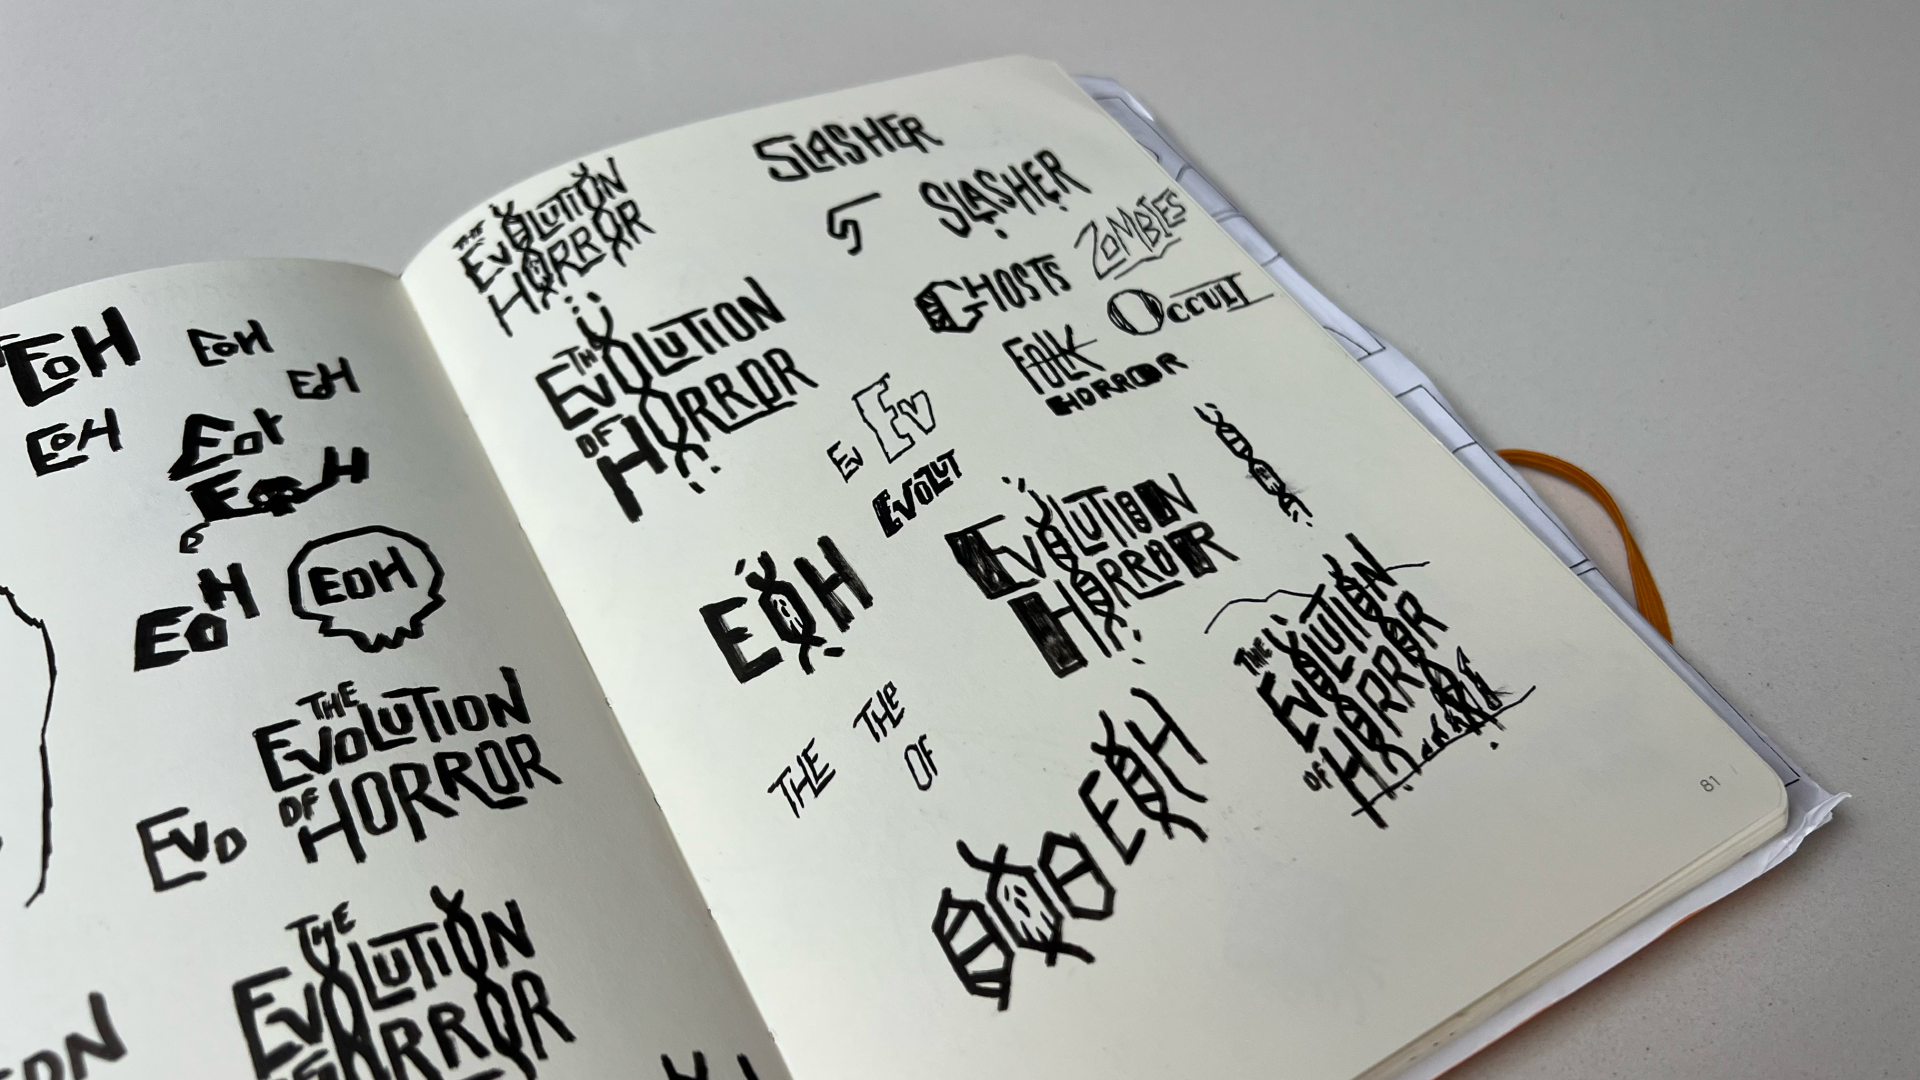 EOH
EOH
EOH
EOH
EOH
EOH
EOH
THE
EVOLUTION
OF HORROR
EVO
THE
EVOLUTION
HORROR
THE
EVOLUTION
HORROR
THE
EVOLUTION
OF HORROR
SLASHER
S
SLASHER
ZOMBIES
GHOSTS
OCCULT
FOLK
HORROR
EV
EV
EVOLUT
EOH
EVOLUTION
HORROR
THE
EVOLUTION
OF HORROR
THE
THE
OF
EOH
81